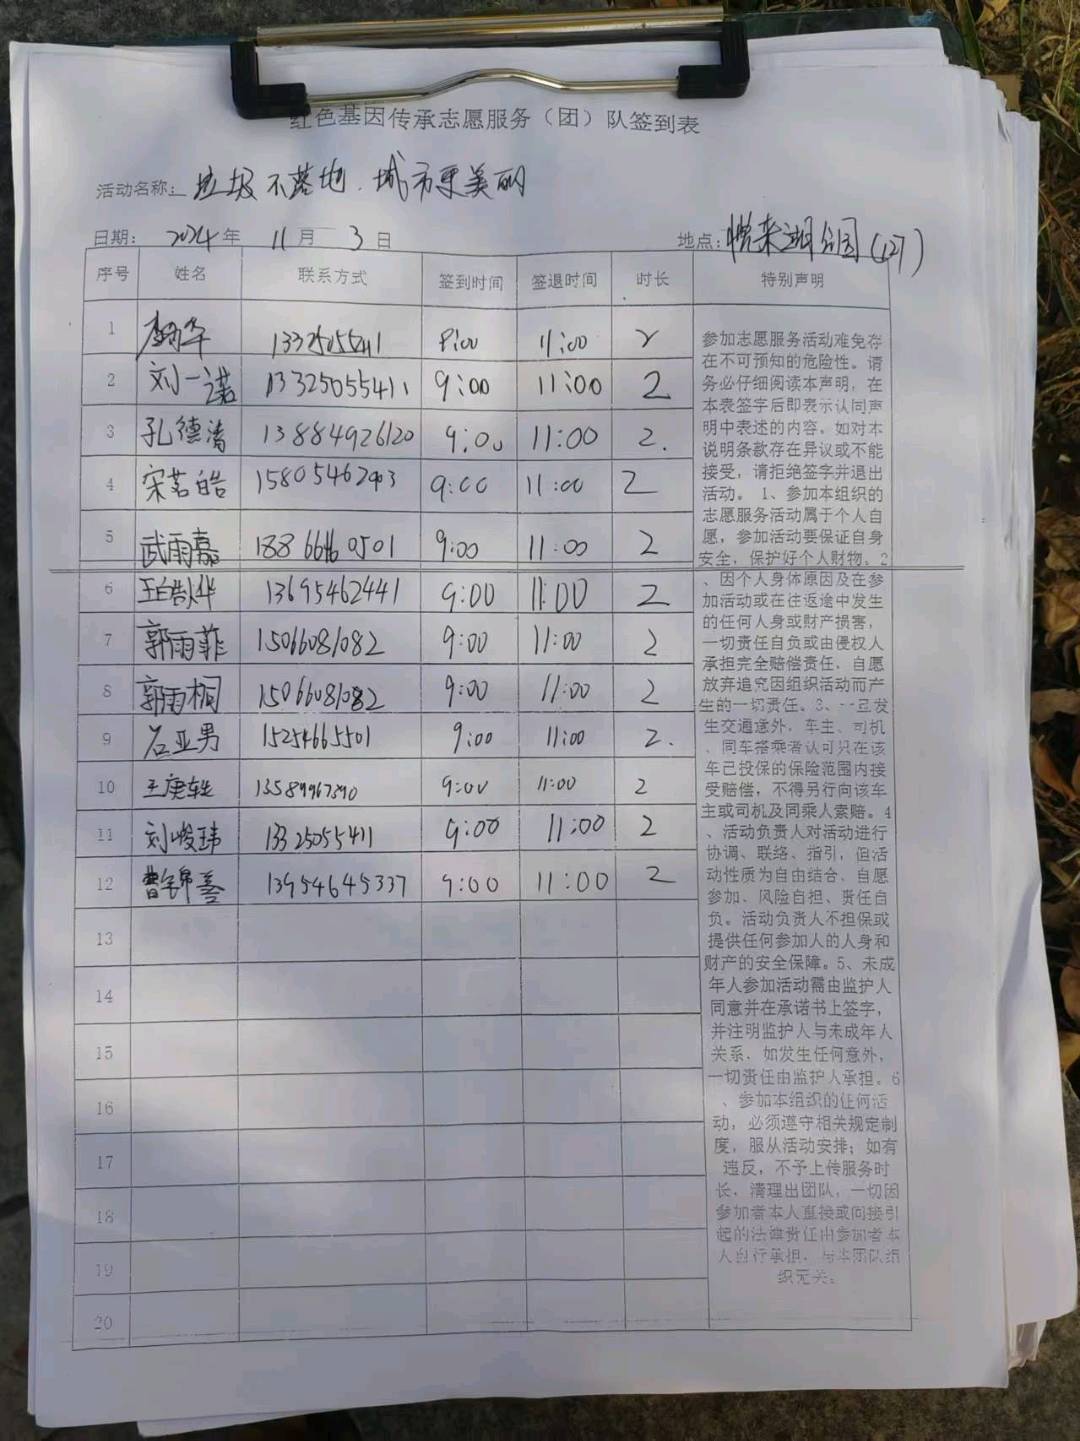 红色基因传承志愿服务（团）队签到表
活动名称： 垃圾不落地、城市更美丽
日期： 2024年 11月 3日 地点：悦来湖公园(127)
序号 姓名 联系方式 签到时间 签退时间 时长 特别声明
1 11:00 2
2 刘一诺 13325055411 9:00 11:00 2
3 孔德清 13884926120 9:00 11:00 2.
4 宋茗皓 15805462903 9:00 11:00 2
5 武雨嘉 9:00 11:00 2
6 13695462441 9:00 11:00 2
7 郭雨菲 15066081082 9:00 11:00 2
8 郭雨桐 15066081082 9:00 11:00 2
9 石亚男 15254665501 9:00 11:00 2.
10 9:00 11:00 2
11 刘峻玮 9:00 11:00 2
12 13954645337 9:00 11:00 2
13
14
15
16
17
18
19
20
参加志愿服务活动难免存
在不可预知的危险性。请
务必仔细阅读本声明，在
本表签字后即表示认同声
明中表述的内容。如对本
说明条款存在异议或不能
接受，请拒绝签字并退出
活动。1、参加本组织的
志愿服务活动属于个人自
愿，参加活动要保证自身
安全，保护好个人财物。2
、因个人身体原因及在参
加活动或在往返途中发生
的任何人身或财产损害，
一切责任自负或由侵权人
承担完全赔偿责任，自愿
放弃追究因组织活动而产
生的一切责任。3、一旦发
生交通意外，车主、司机
、同车搭乘者认可只在该
车已投保的保险范围内接
受赔偿，不得另行向该车
主或司机及同乘人索赔。4
、活动负责人对活动进行
协调、联络、指引，但活
动性质为自由结合、自愿
参加、风险自担、责任自
负。活动负责人不担保或
提供任何参加人的人身和
财产的安全保障。5、未成
年人参加活动需由监护人
同意并在承诺书上签字，
并注明监护人与未成年人
关系，如发生任何意外，
一切责任由监护人承担。6
、参加本组织的任何活
动，必须遵守相关规定制
度，服从活动安排；如有
违反，不予上传服务时
长，清理出团队，一切因
参加者本人直接或间接引
起的法律责任由参加者本
人自行承担，与本团队组
织无关。